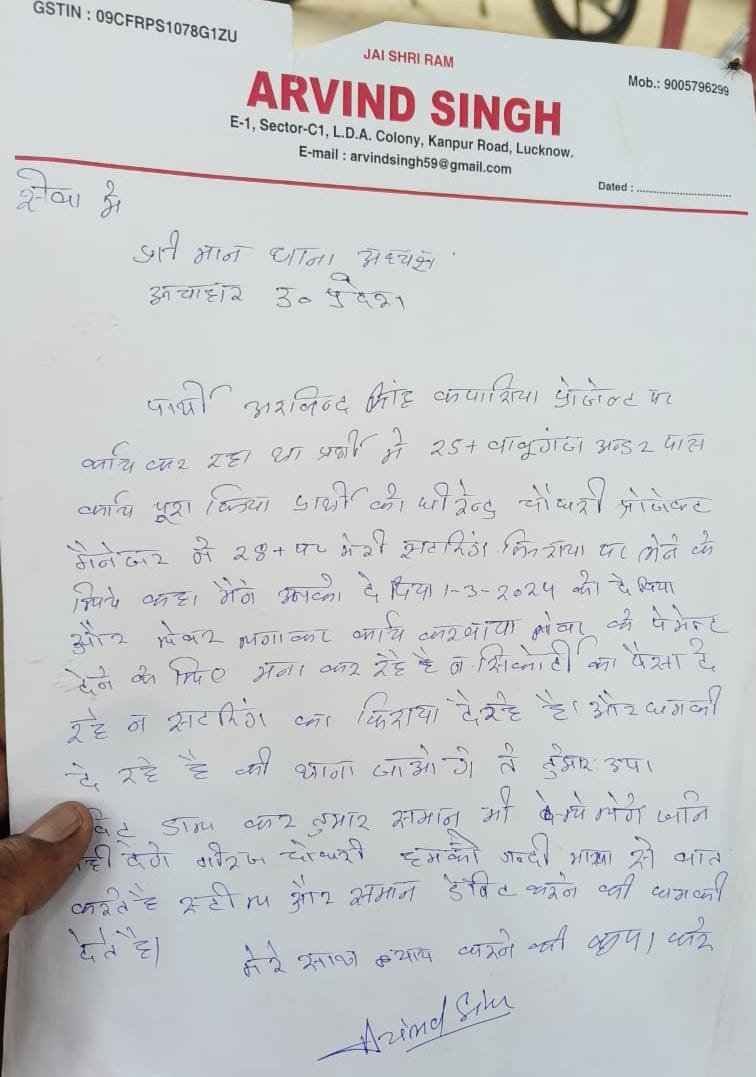 GSTIN : 09CFRPS1078G1ZU
JAI SHRI RAM
Mob.: 9005796299
ARVIND SINGH
E-1, Sector-C1, L.D.A. Colony, Kanpur Road, Lucknow.
E-mail : arvindsingh59@gmail.com
Dated : ..............................
सेवा मे
मान थाना अध्यक्ष
ऊचाहार उ० प्रदेश
पार्थी अरविन्द सिंह प्रोजेक्ट पर
कार्य कर रहा था प्रर्थी मे 25+ बाबूगंज अन्डर पास
कार्य पूरा किया प्रार्थी को धीरेन्द्र चौधरी प्रोजेक्ट
मैनेजर ने 28+ पर मेरी सटरिंग किराया पर लेने के
लिये कहा मैने उनको दे दिया 1-3-2024 को दे दिया
और लेबर लगाकर कार्य करवाया लेबर के पेमेन्ट
देने के लिए मना कर रहे है न सिकोर्टी का पैसा दे
रहे न सटरिंग का किराया दे रहे है। और धमकी
दे रहे है की थाना जाओगे तो तुमार उपा
डाल कर तुमार समान भी
नही देगे धीरज चौधरी हमको गन्दी भाषा से बात
करते है स्टील और समान डेबिट करने की धमकी
देते है।
मेरे साथ न्याय करने की कृपा करे
Arvind Singh